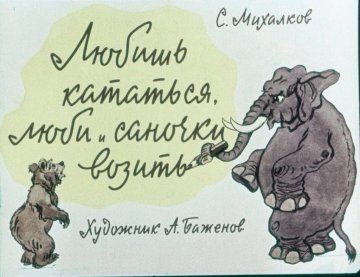 С. Михалков
Любишь
кататься,
люби и саночки
возить
Художник А. Баженов